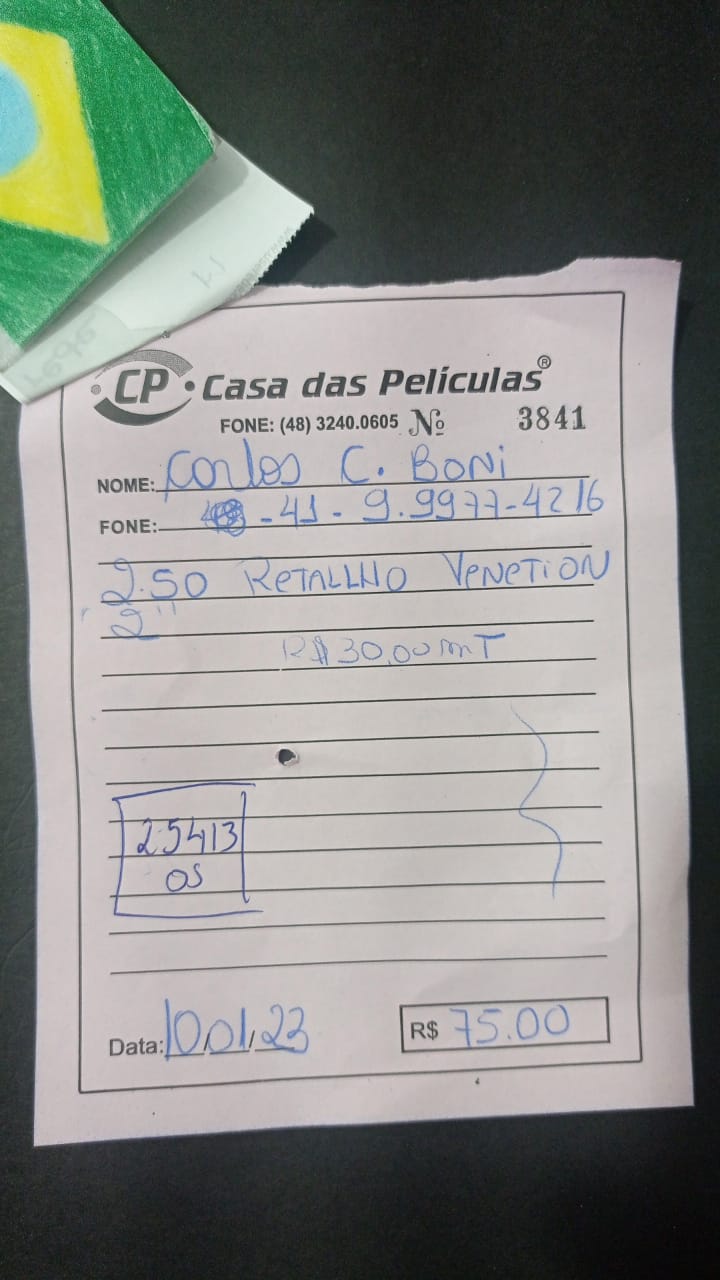 CP • Casa das Películas®
FONE: (48) 3240.0605 Nº 3841
NOME: Carlos C. BONi
FONE: - 41 - 9.9977-4216
2.50 RETALLHO VENETION
2"
R$ 30,00 mT
25413
OS
Data: 10/01/23 R$ 75.00